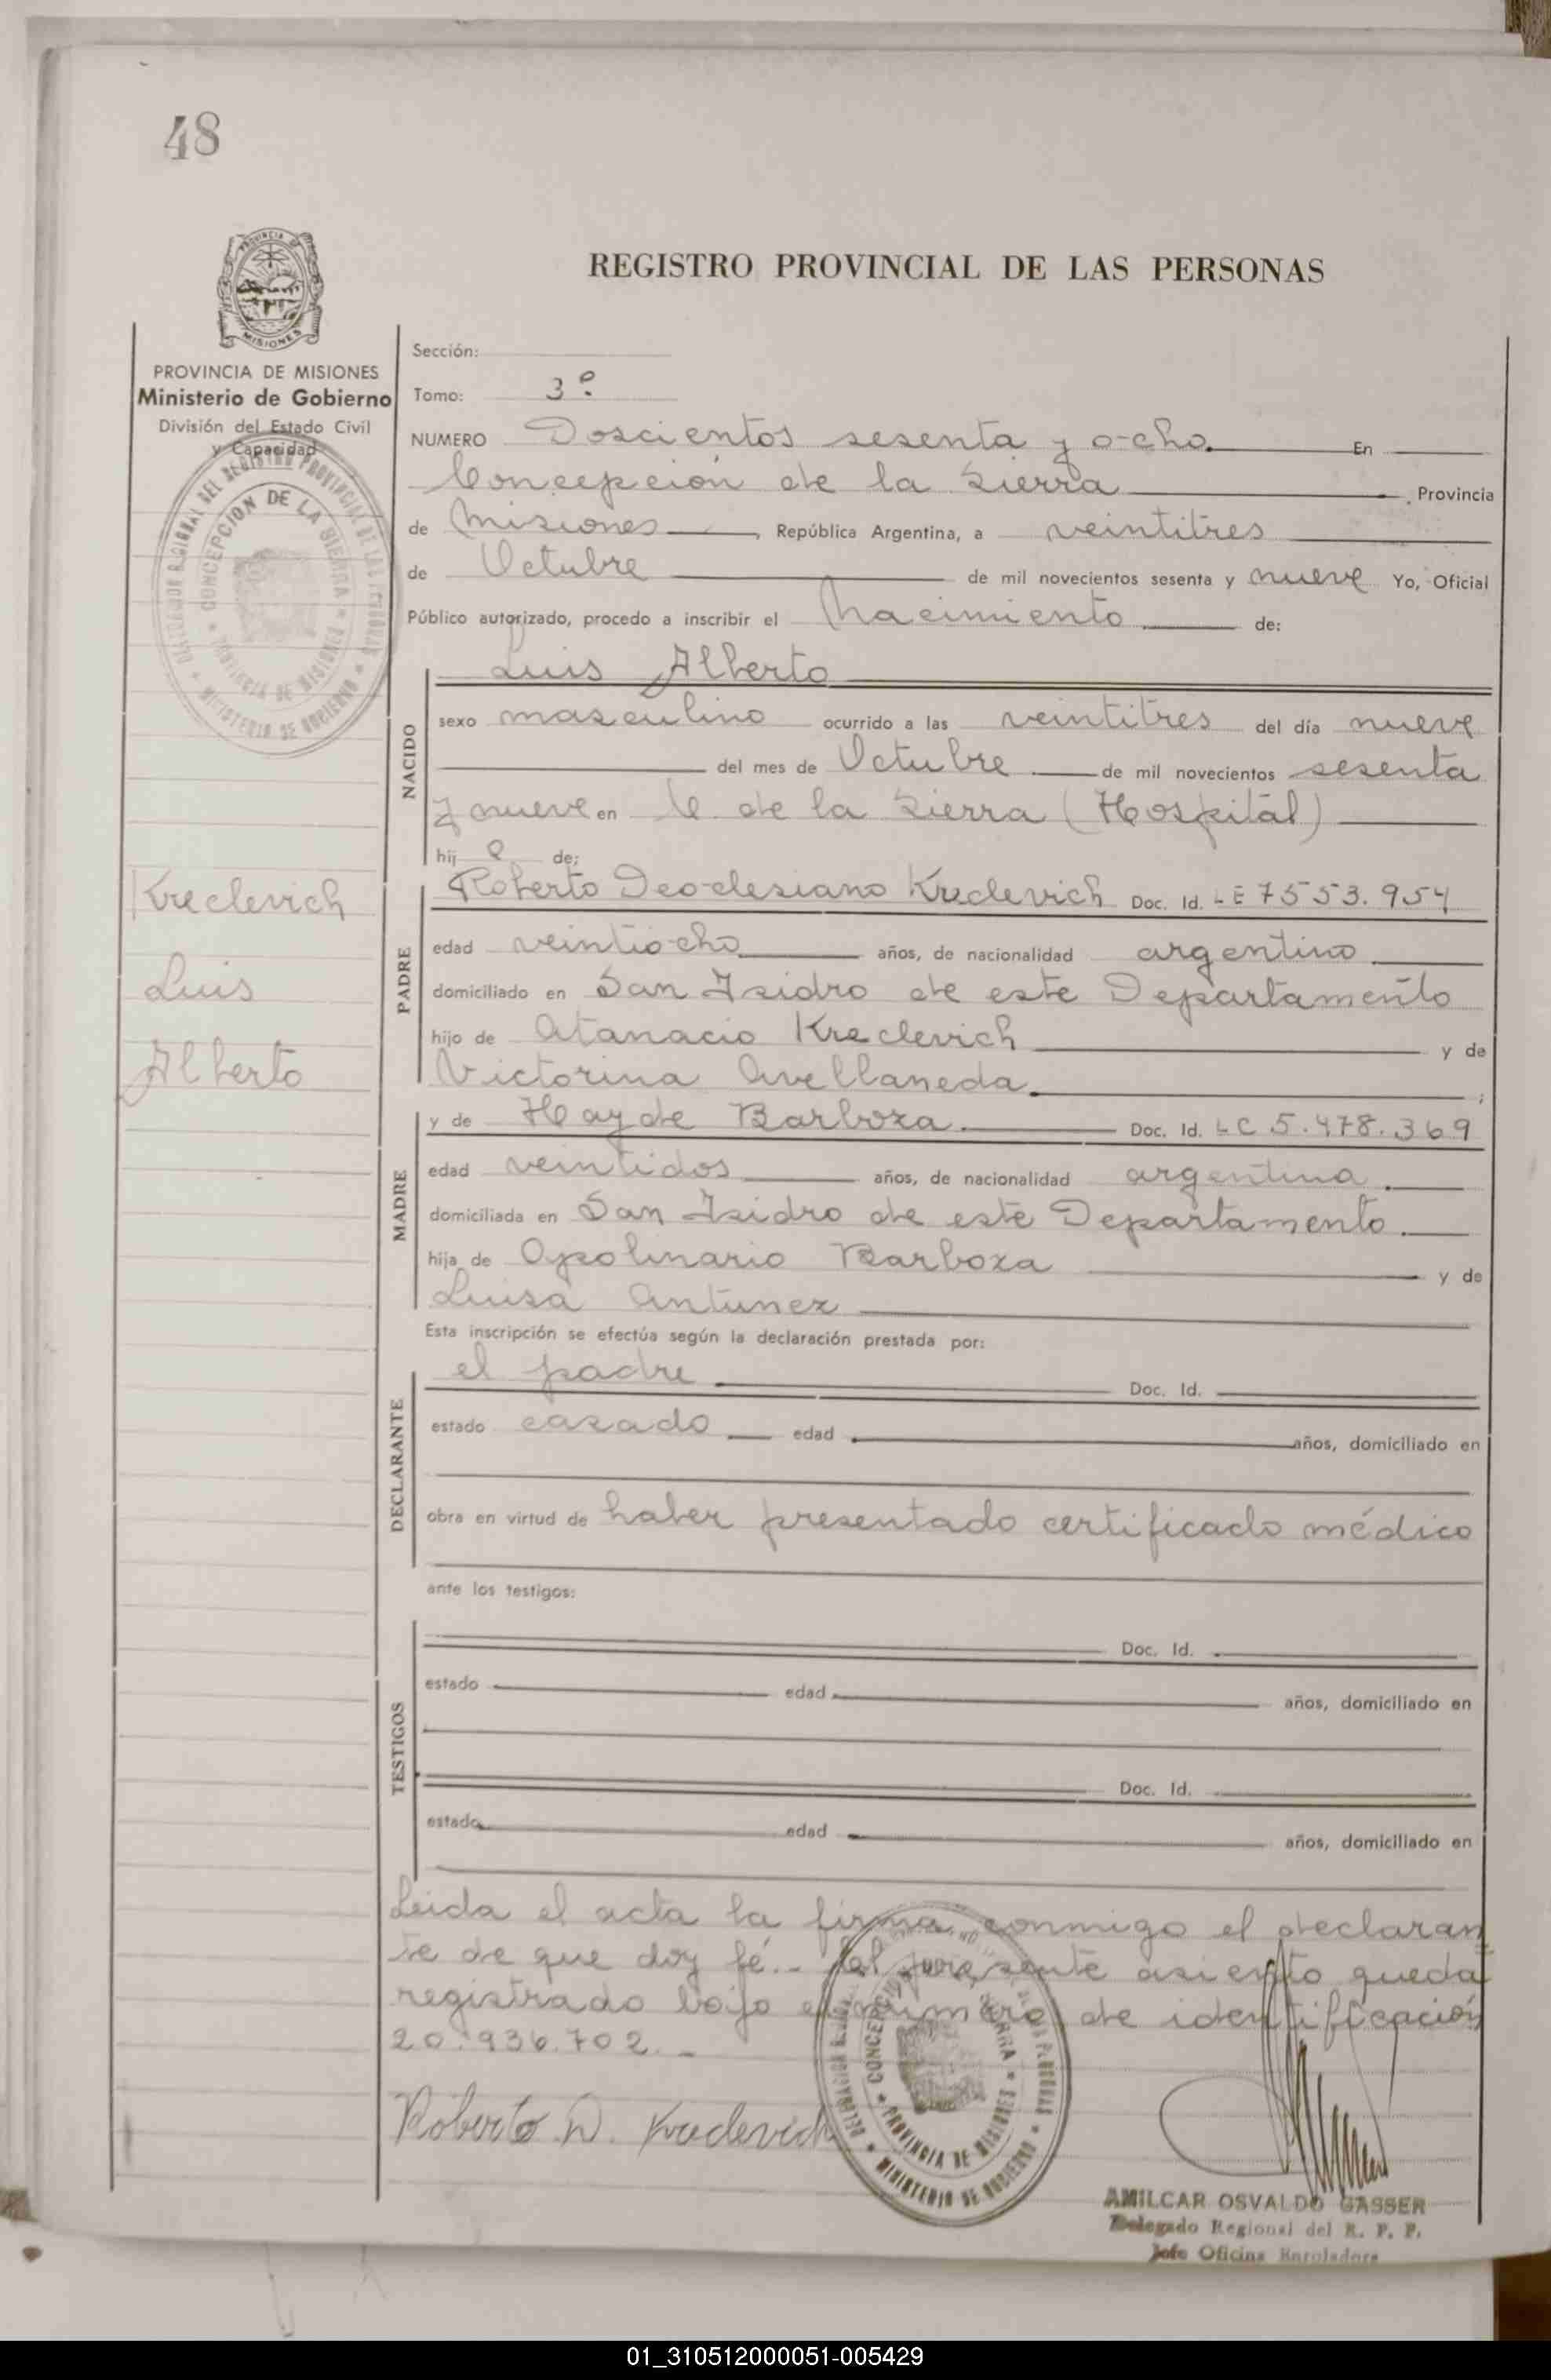 48
REGISTRO PROVINCIAL DE LAS PERSONAS
PROVINCIA DE MISIONES
Ministerio de Gobierno
División del Estado Civil
y Capacidad
DELEGACION REGIONAL DEL REGISTRO PROVINCIAL DE LAS PERSONAS
CONCEPCION DE LA SIERRA
PROVINCIA DE MISIONES
MINISTERIO DE GOBIERNO
Kreclevich
Luis
Alberto
Sección:
Tomo: 3º
NUMERO Doscientos sesenta y ocho. En
Concepción de la Sierra . Provincia
de Misiones , República Argentina, a veintitres
de Octubre de mil novecientos sesenta y nueve Yo, Oficial
Público autorizado, procedo a inscribir el Nacimiento de:
NACIDO
Luis Alberto
sexo masculino ocurrido a las veintitres del día nueve
del mes de Octubre de mil novecientos sesenta
y nueve en C de la Sierra (Hospital)
hij o de:
PADRE
Roberto Deoclesiano Kreclevich Doc. Id. LE 7553.954
edad veintiocho años, de nacionalidad argentino
domiciliado en San Isidro de este Departamento
hijo de Atanacio Kreclevich y de
Victorina Avellaneda. ;
MADRE
y de Hayde Barboza. Doc. Id. LC 5.478.369
edad veintidos años, de nacionalidad argentina.
domiciliada en San Isidro de este Departamento.
hija de Apolinario Barboza y de
Luisa Antunez
Esta inscripción se efectúa según la declaración prestada por:
DECLARANTE
el padre Doc. Id.
estado casado edad años, domiciliado en
obra en virtud de haber presentado certificado médico
ante los testigos:
TESTIGOS
Doc. Id.
estado edad años, domiciliado en
Doc. Id.
estado edad años, domiciliado en
Leida el acta la firma conmigo el declaran
te de que doy fé.- El presente asiento queda
registrado bajo el número de identificación
20.936.702.-
Roberto D. Kreclevich
CONCEPCION SIERRA
PROVINCIA DE MISIONES
MINISTERIO DE GOBIERNO
AMILCAR OSVALDO GASSER
Delegado Regional del R. P. P.
Jefe Oficina Enroladora
01_310512000051-005429